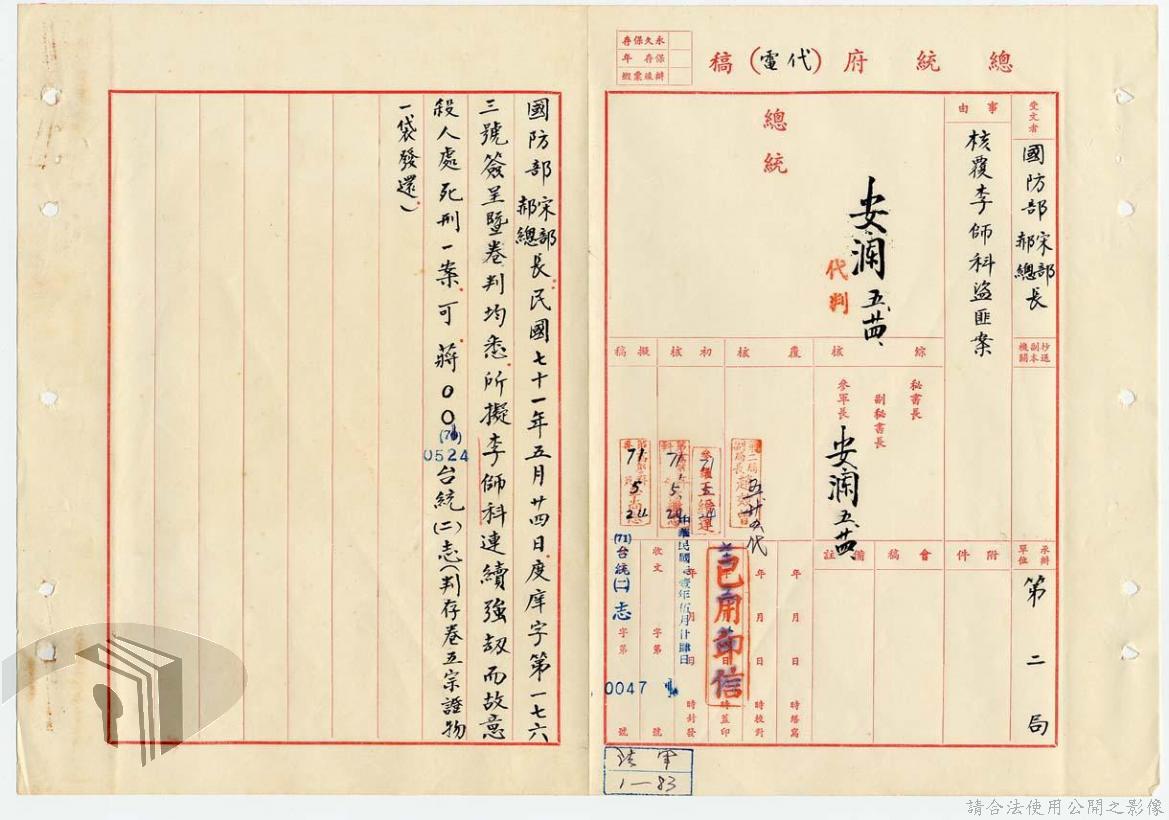 總統府(代電)稿
永久保存
保存 年
受文者
國防部宋部長
郝總長
抄送副本機關
承辦單位
第二局
事由
核覆李師科盜匪案
附件
總統
安瀾 五、廿四、
代判
綜核
秘書長
副秘書長
參軍長
安瀾 五、廿四
覆核
初核
擬稿
會稿
備註
71 5 24
中華民國壹年伍月廿肆日
已用印信
年 月 日 時繕寫
年 月 日 時校對
時蓋印
時封發
收文 字第 號
(71)台統(二)志 字第 0047 號
1—83
國防部宋部長郝總長:民國七十一年五月廿四日度庠字第一七六
三號簽呈暨卷判均悉。所擬李師科連續強劫而故意
殺人處死刑一案,可。蔣○○(71)0524台統(二)志(判存卷五宗證物
一袋發還)
請合法使用公開之影像